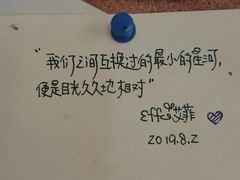 “我们之间互换过的最小的星河，
便是目光久久地相对”
Effie艾菲
2019.8.2